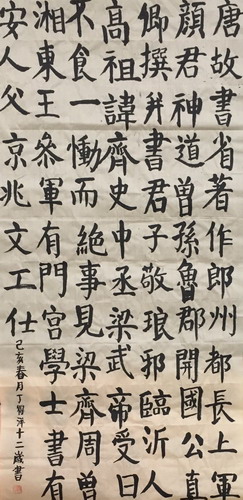 唐故書省著作郎州都長上軍
顏君神道曾孫魯郡開國公真
卿撰并書君子敬琅邪臨沂人
高祖諱齊史中丞梁武帝受日
不食一慟而絕事見梁齊周曾
湘東王叅軍有門宮學士書有
安人父京兆文工仕
己亥春月丁十二歲書